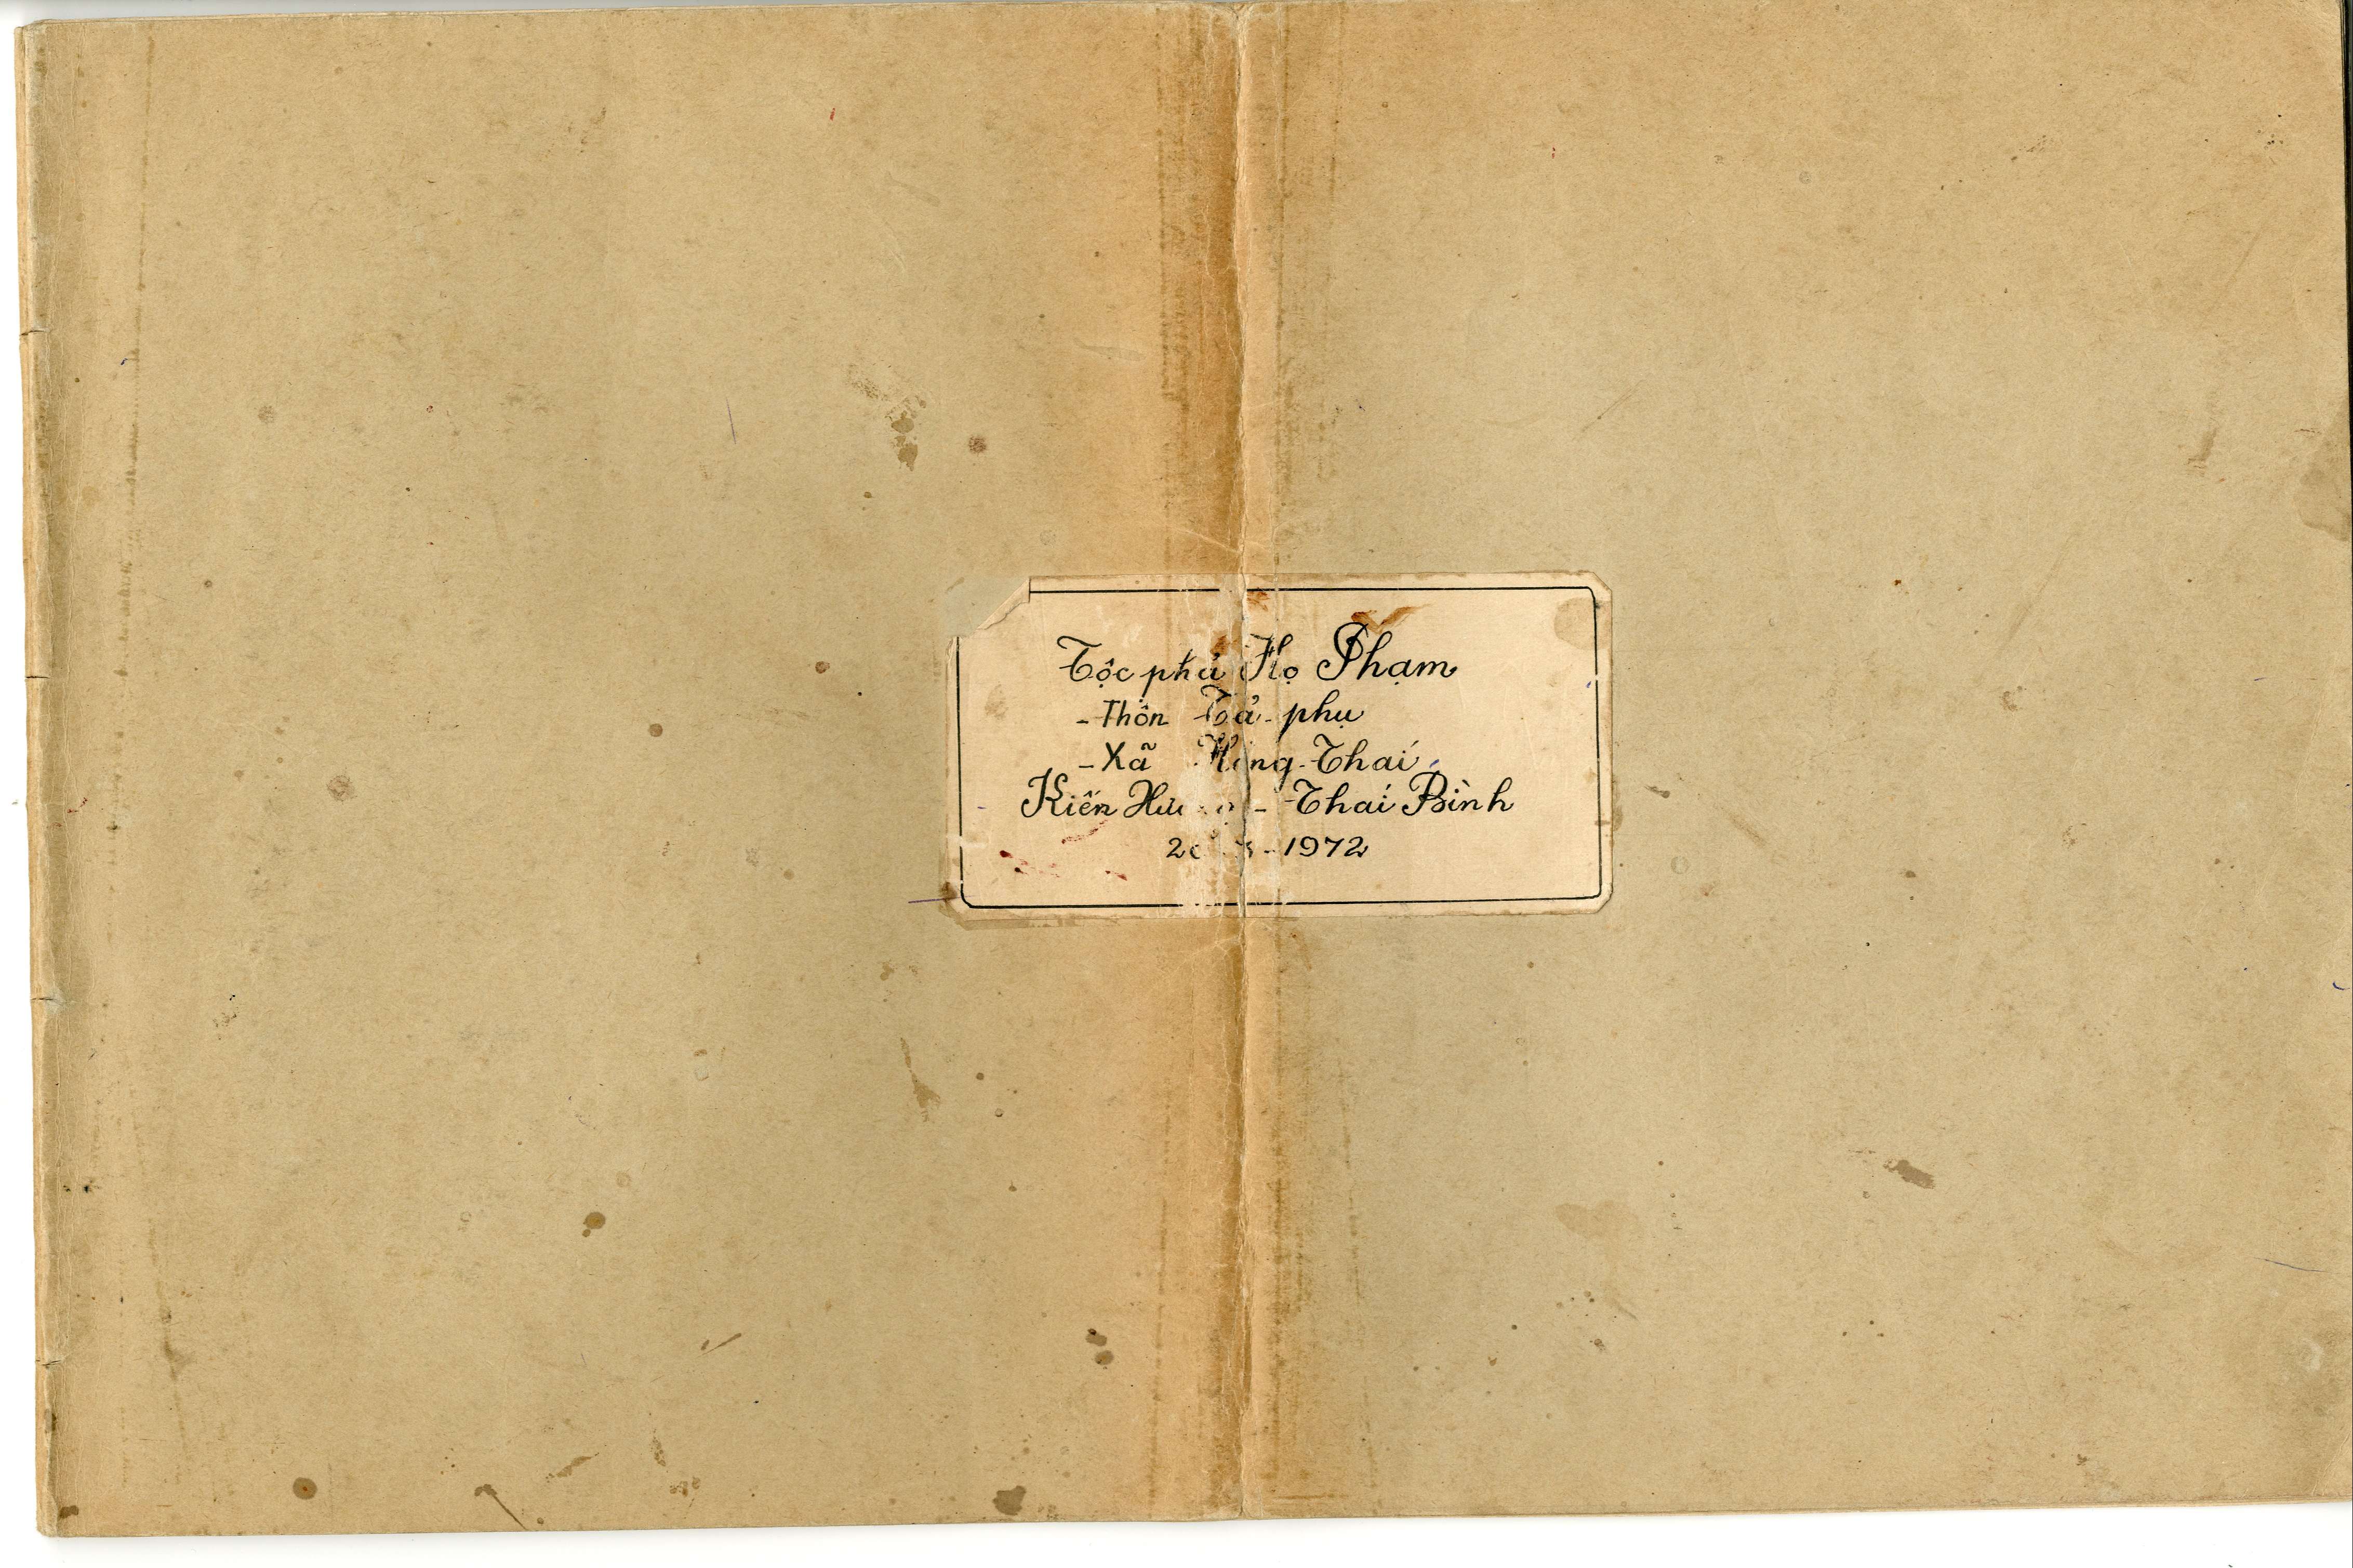 Tộc phả Họ Phạm
- Thôn Tả - phụ
- Xã Hồng - Thái
Kiến Xương - Thái Bình
1972